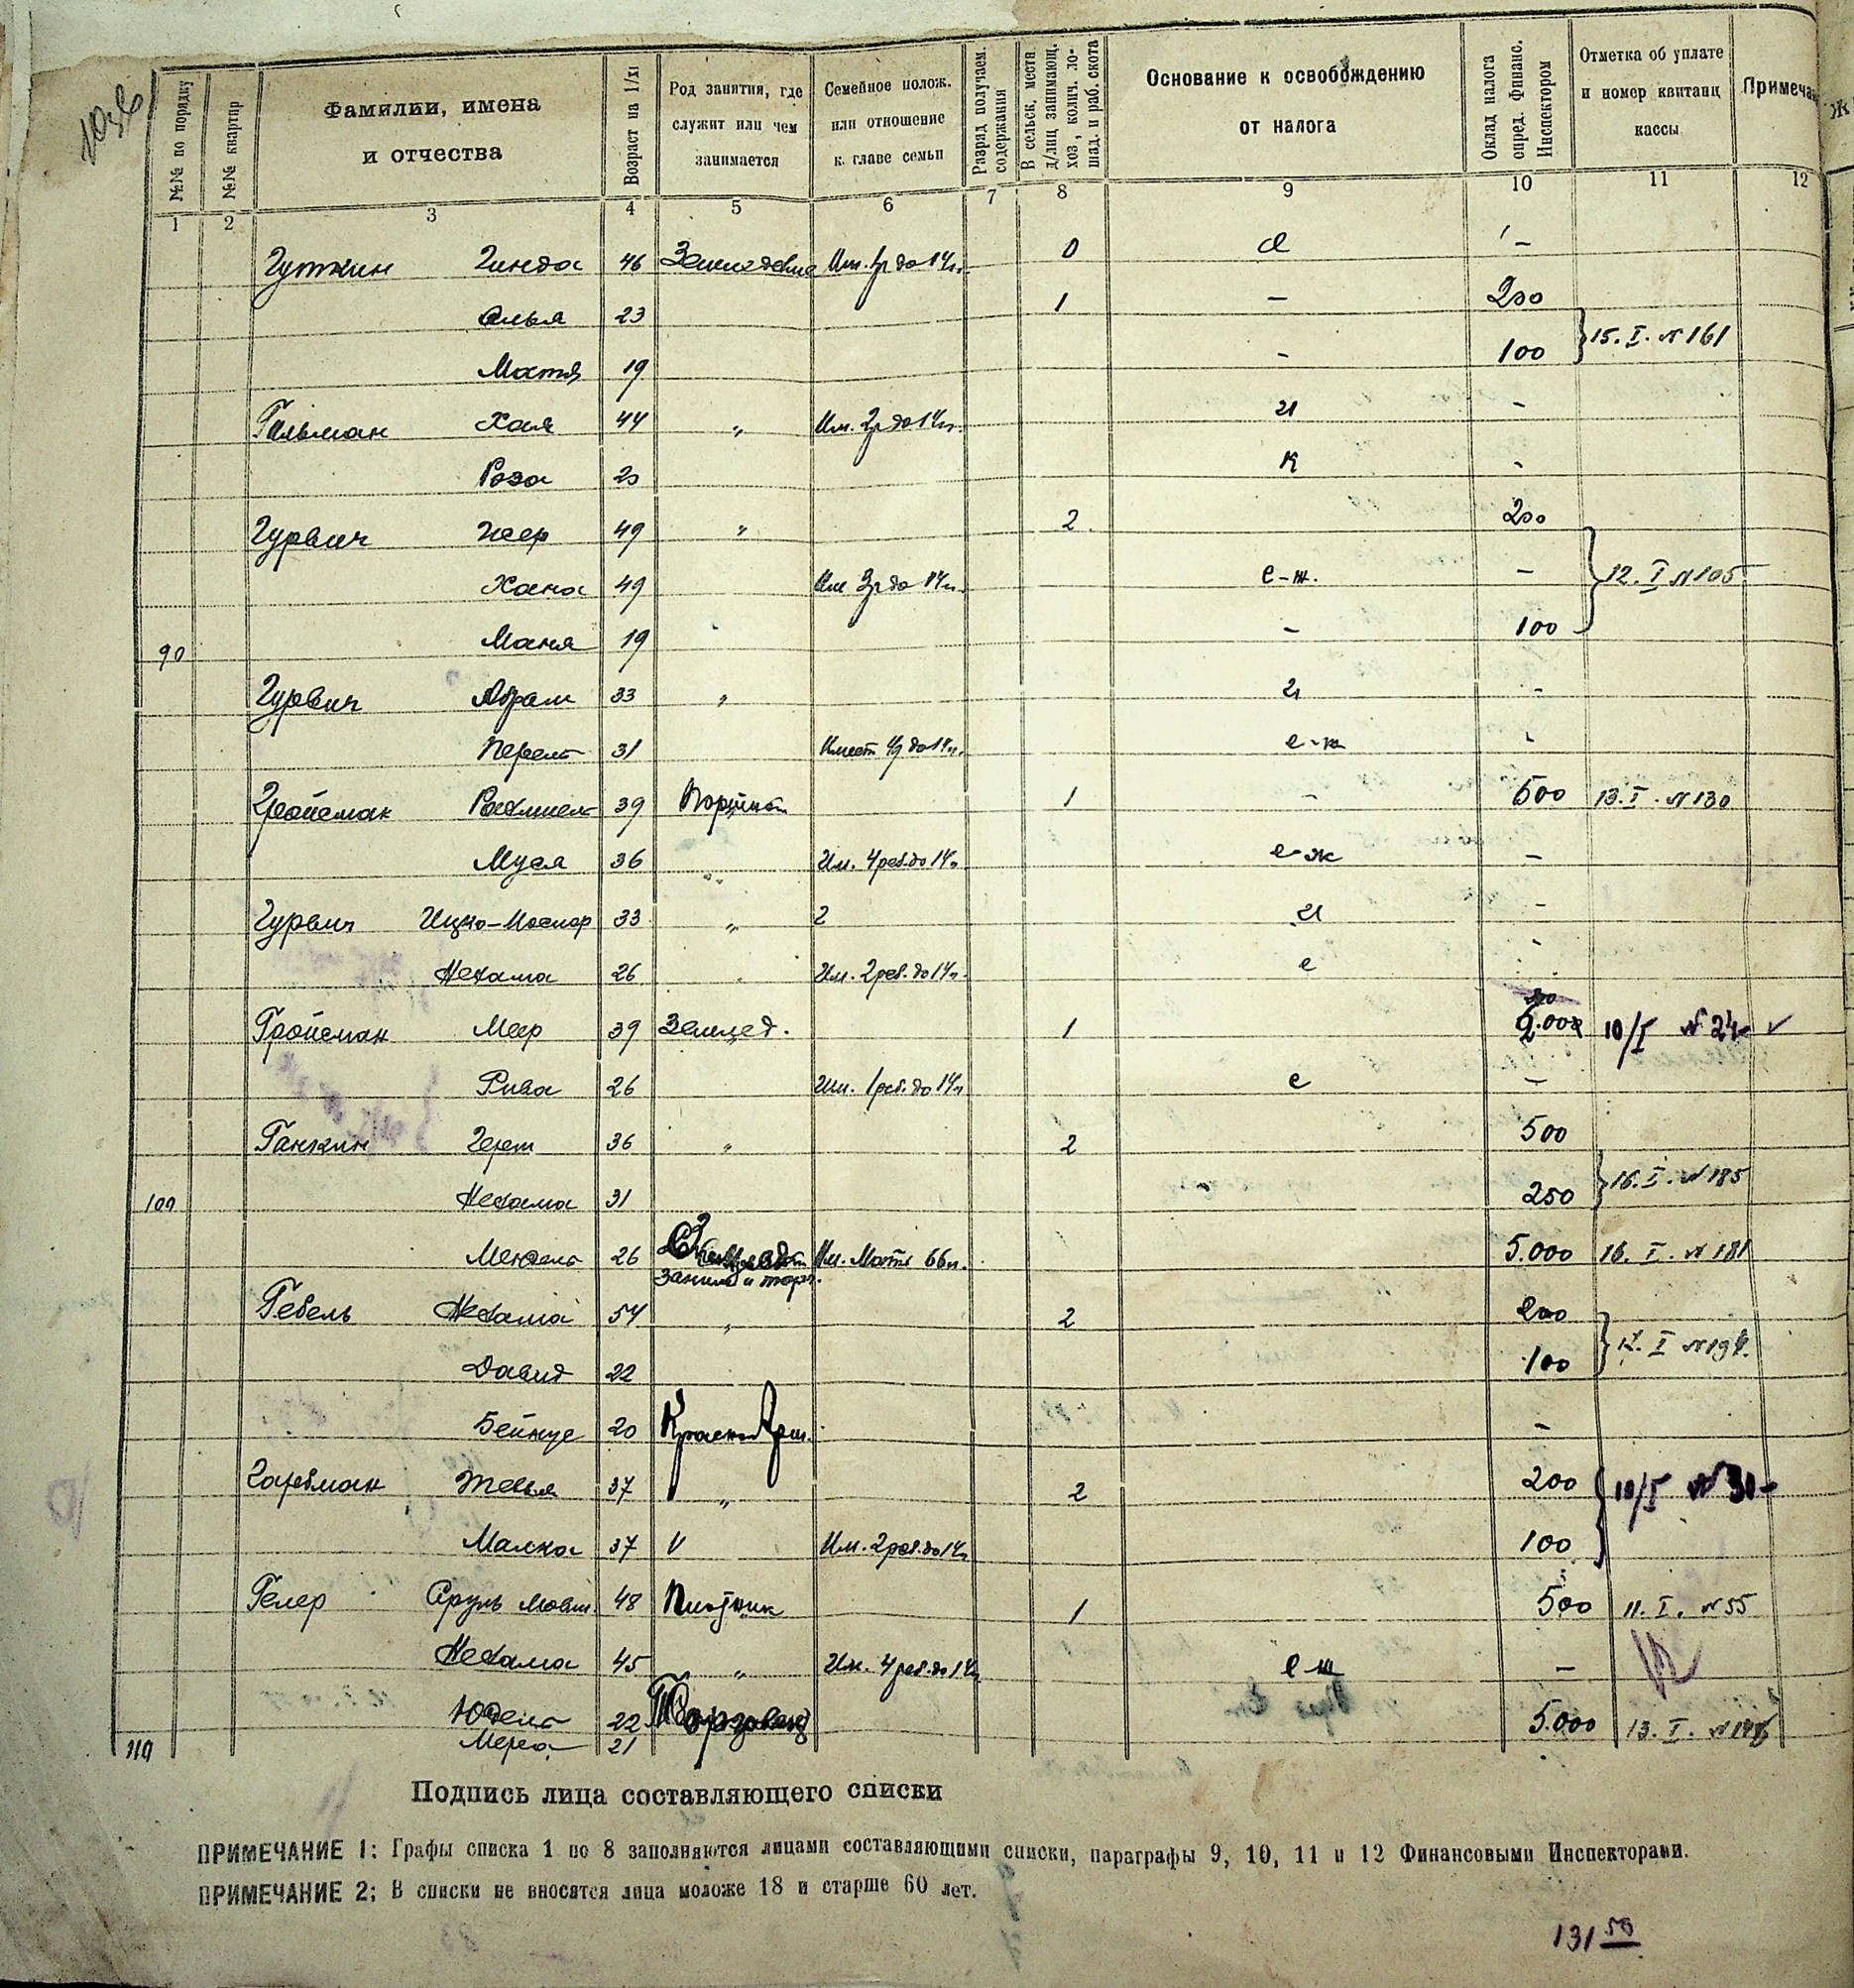 №№ по порядку
№№ квартир
Фамилии, имена
и отчества
Возраст на 1/XI
Род занятия, где
служит или чем
занимается
Семейное полож.
или отношение
к главе семьи
Разряд получаем.
содержания
В сельск. места
д/лиц занимающ.
хоз, колич. ло-
шад. и раб. скота
Основание к освобождению
от налога
Оклад налога
опред. Финанс.
Инспектором
Отметка об уплате
и номер квитанц
кассы
Примеча
1 2 3 4 5 6 7 8 9 10 11 12
Гуткин Гинда 46 Земледелие Им. до 14 л. 0 е –
23 1 – 200
Матя 19 – 100 15. I. № 161
Гильман Хая 44 „ Им. 2 р до 14 л. и -
Роза 20 к -
Гурвич 49 „ 2 200
Хана 49 Им 3 р до 14 л. е-ж. – 12. I № 105
90 Маня 19 – 100
Гурвич Абрам 33 „ и -
Перель 31 Имеет 4 р до 14 л. е-ж -
Гройсман Рахмиель 39 Портной 1 - 500 13. I. № 130
Муся 36 „ Им. 4 реб. до 14 л. е-ж –
Гурвич Ицко- 33 „ 2 и -
Нехама 26 Им. 2 реб. до 14 л. е -
Гройсман Меер 39 Землед. 1 10/I № 24 ✓
Рива 26 Им. 1 реб. до 14 л е –
Ганкин Герш 36 „ 2 500
100 Нехама 31 250 16. I. № 185
Мендель 26 Им. Мать 66 л. 5.000 16. I. № 181
Заним и торг.
Гебель Нехама 54 „ 2 200
Давид 22 100 I № 194.
20 Красноарм. –
Гарбман Тевья 37 „ 2 200 10/I № 30
Малка 37 V Им. 2 реб. до 14 л 100
Гелер Сруль 48 Плотник 1 500 11. I. № 55
Нехама 45 „ Им. 4 реб. до 14 л е-ж –
Юдель 22 Торговец 5.000 13. I.
110 21
Подпись лица составляющего списки
ПРИМЕЧАНИЕ 1: Графы списка 1 по 8 заполняются лицами составляющими списки, параграфы 9, 10, 11 и 12 Финансовыми Инспекторами.
ПРИМЕЧАНИЕ 2: В списки не вносятся лица моложе 18 и старше 60 лет.
131 50